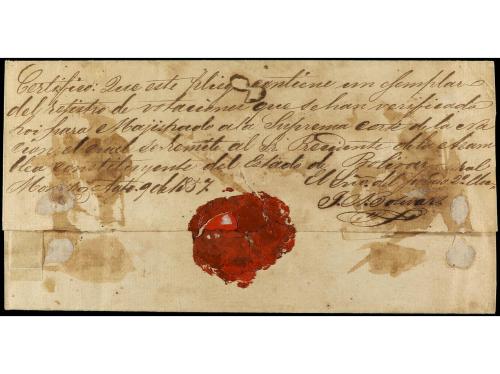 Certifico: Que este pliego contiene un ejemplar
del registro de votaciones que se han verificado
hoi para Majistrado a la Suprema corte de la na
cion el cual se remite al Sr Presidente de la Asam
blea constituyente del Estado de Bolivar
Agto. 9 de 1857. El